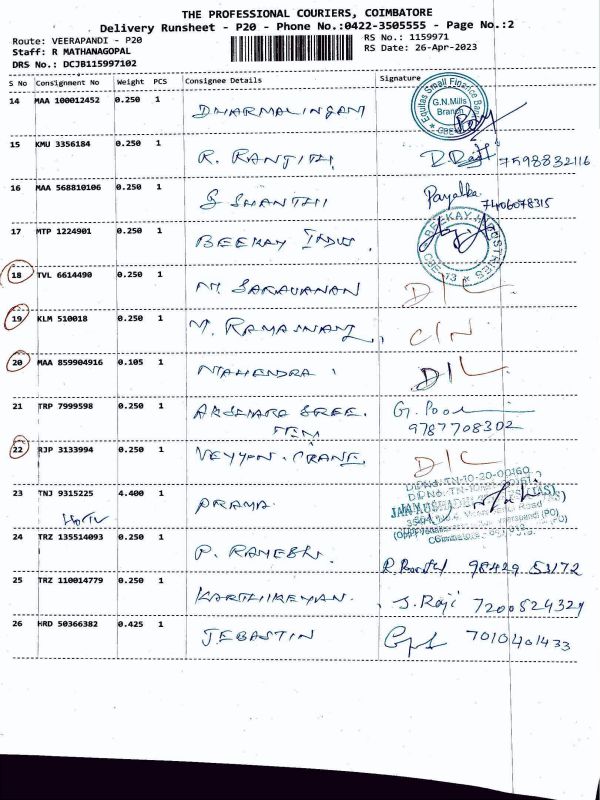 THE PROFESSIONAL COURIERS, COIMBATORE
Delivery Runsheet - P20 - Phone No.:0422-3505555 - Page No.:2
Route: VEERAPANDI - P20
RS No.: 1159971
Staff: R MATHANAGOPAL
RS Date: 26-Apr-2023
DRS No.: DCJB115997102
S No Consignment No Weight PCS Consignee Details Signature
14 MAA 100012452 0.250 1 DHARMALINGAM
Equitas Small Finance Bank
G.N.Mills
Branch
15 KMU 3356184 0.250 1 R. RANJITH 7598832116
16 MAA 568810106 0.250 1 S SHANTHI Payalka
7406078315
17 MTP 1224901 0.250 1 BEEKAY INDUS.
BEEKAY INDUSTRIES
CBE-73
18 TVL 6614490 0.250 1 M. SARAVANAN D/L
19 KLM 510018 0.250 1 M. RAMASWAMY C/N
20 MAA 859904916 0.105 1 MAHENDRA D/L
21 TRP 7999598 0.250 1 SREE. G. Poo
9787708302
22 RJP 3133994 0.250 1 D/L
23 TNJ 9315225 4.400 1
D.L.No. TN-10-20-00160
24 TRZ 135514093 0.250 1 P. RAMESH. 98429 53172
25 TRZ 110014779 0.250 1 KARTHIKEYAN. J. Raji 7200524324
26 HRD 50366382 0.425 1 JEBASTIN 7010401433